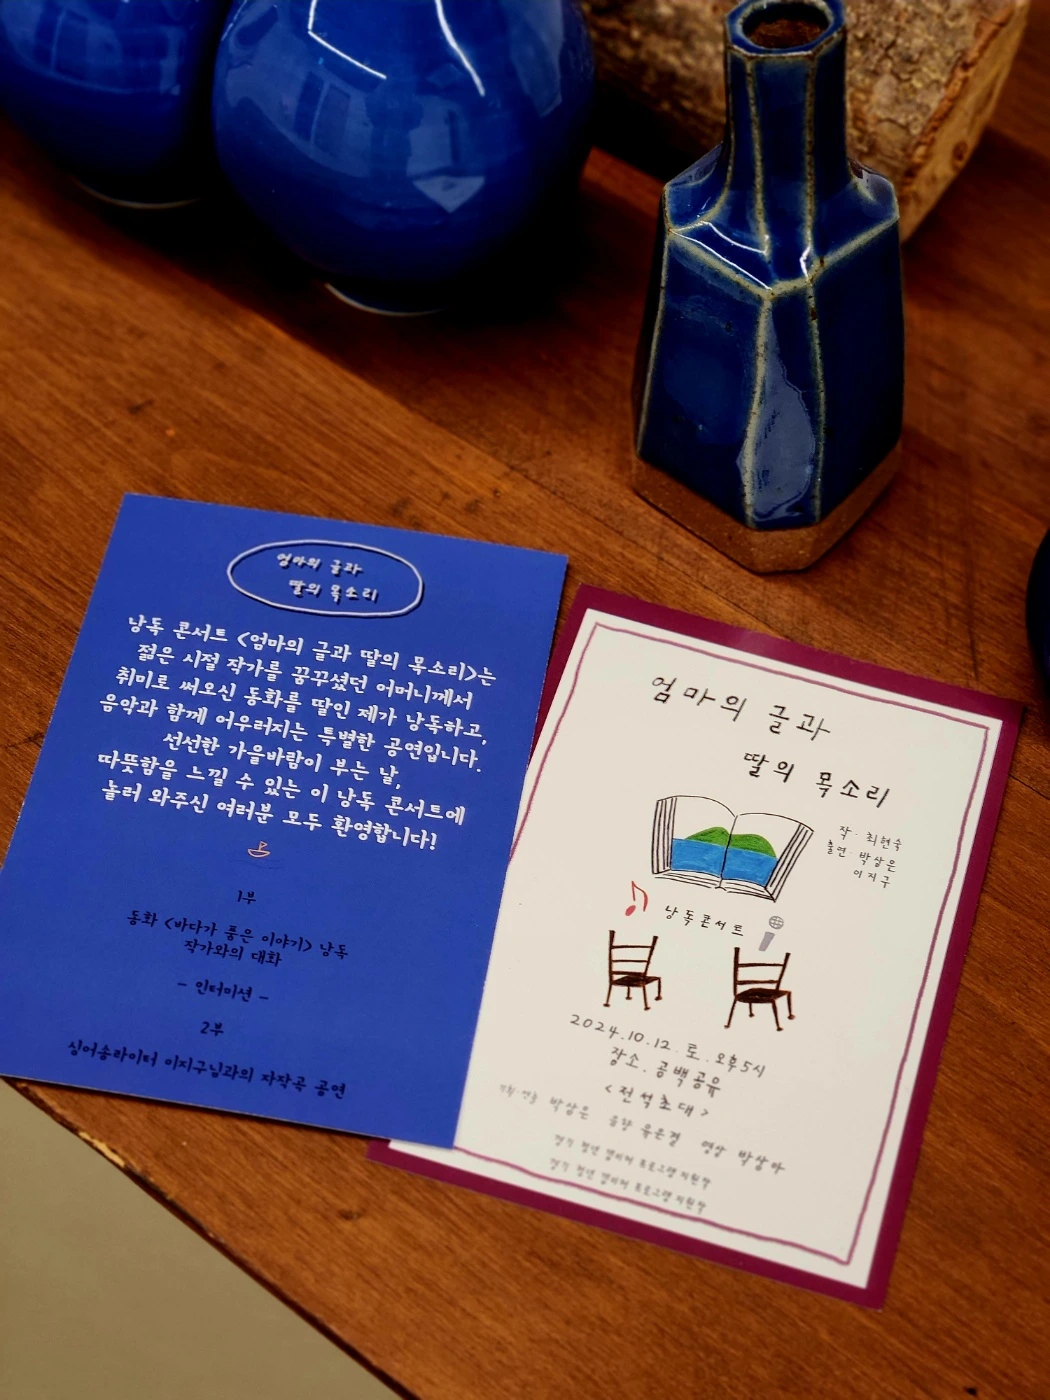 엄마의 글과
딸의 목소리
낭독 콘서트 <엄마의 글과 딸의 목소리>는
젊은 시절 작가를 꿈꾸셨던 어머니께서
취미로 써오신 동화를 딸인 제가 낭독하고,
음악과 함께 어우러지는 특별한 공연입니다.
선선한 가을바람이 부는 날,
따뜻함을 느낄 수 있는 이 낭독 콘서트에
놀러 와주신 여러분 모두 환영합니다!
1부
동화 <바다가 품은 이야기> 낭독
작가와의 대화
- 인터미션 -
2부
싱어송라이터 이지구님과의 자작곡 공연
엄마의 글과
딸의 목소리
작· 최현숙
출연· 박상은
이지구
낭독콘서트
2024.10.12. 토. 오후5시
장소. 공백공유
<전석초대>
박상은 음향 유은결 영상 박상아
경기 청년 갭이어 프로그램 지원작
경기 청년 갭이어 프로그램 지원작